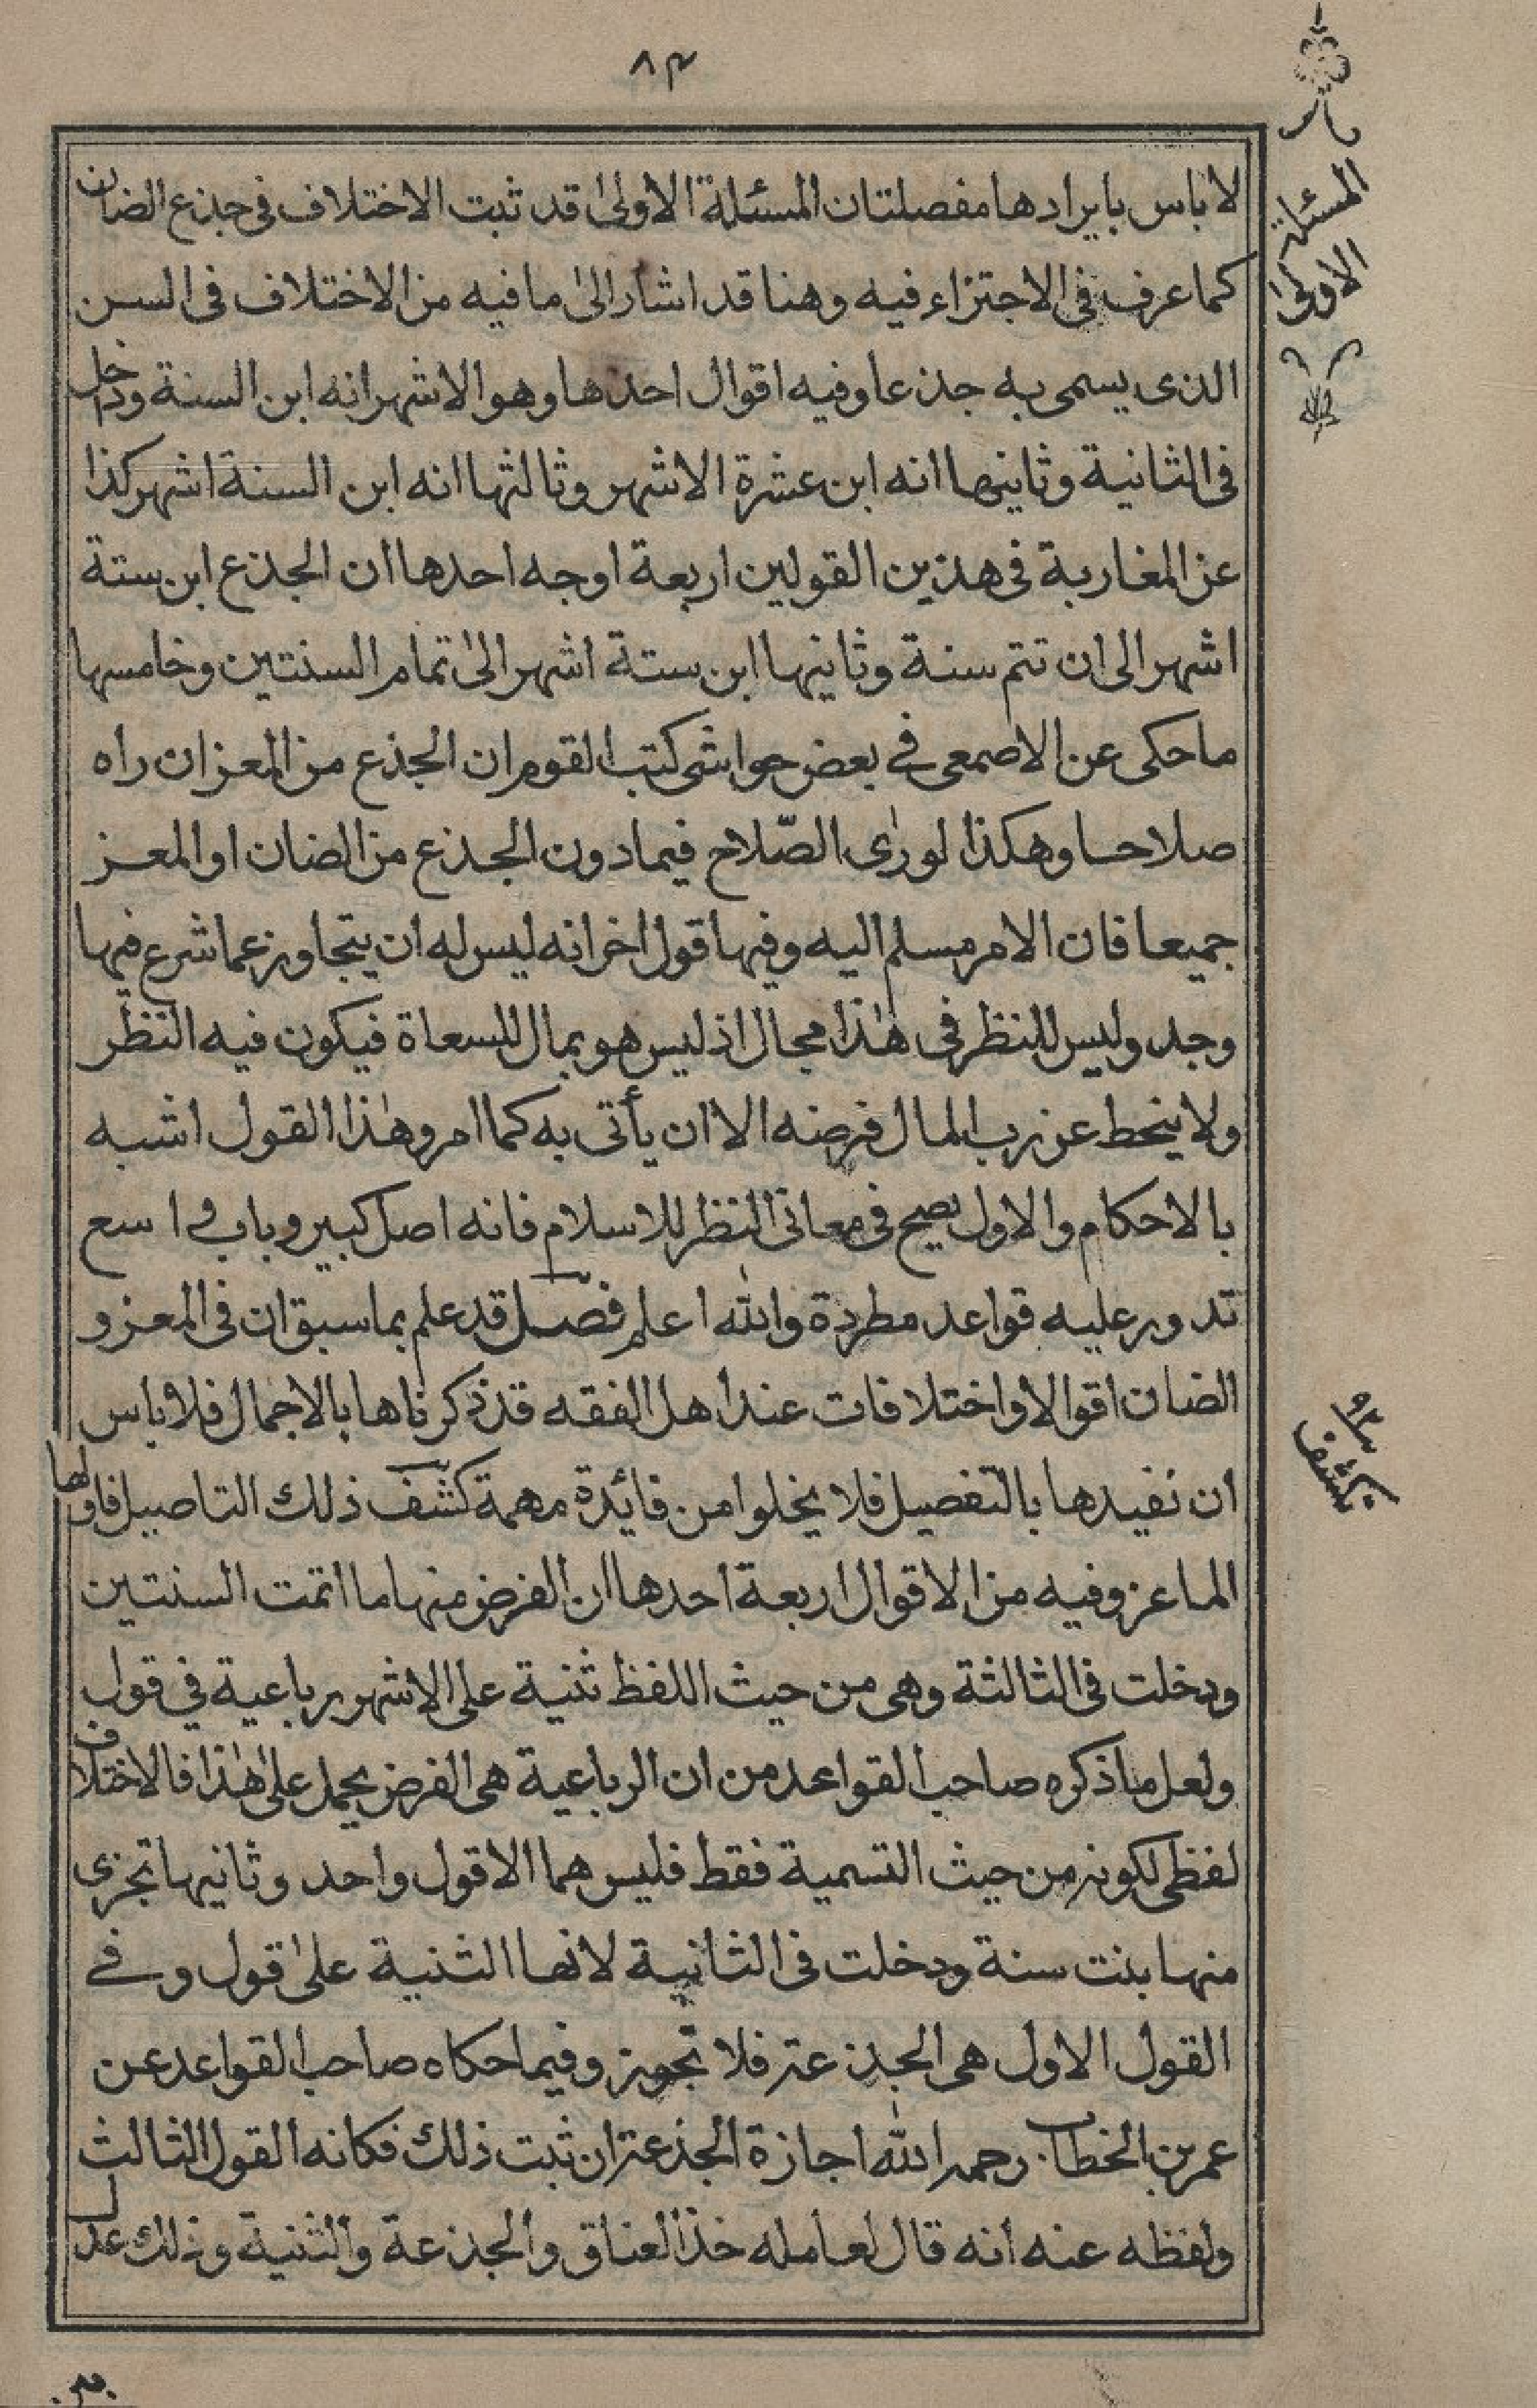 ٨٣
لا باس بايرادها مفصلتان المسئلة الاولىٰ قد ثبت الاختلاف فى جذع الضان
كما عرف فى الاجتزاء فيه وهنا قد اشار الىٰ ما فيه من الاختلاف فى السن
الذى يسمى به جذعا وفيه اقوال احدها وهو الاشهر انه ابن السنة ودخل
فى الثانية وثانيها انه ابن عشرة الاشهر وثالثها انه ابن الستة اشهر كذا
عن المغاربة فى هذين القولين اربعة اوجه احدها ان الجذع ابن ستة
اشهر الى ان تتم سنة وثانيها ابن ستة اشهر الىٰ تمام السنتين وخامسها
ما حكى عن الاصمعى في بعض حواشى كتب القوم ان الجذع من المعز ان راه
صلاحا وهكذا لو رأى الصّلاح فيما دون الجذع من الضان او المعز
جميعا فان الامر مسلم اليه وفيها قول اخر انه ليس له ان يتجاوز عما شرع فيها
وجد وليس للنظر فى هٰذا مجال اذ ليس هو بمال للسعاة فيكون فيه النظر
ولا ينحط عن رب المال فرضه الا ان يأتى به كما امر وهٰذا القول اشبه
بالاحكام والاول يصح فى معانى النظر للاسلام فانه اصل كبير وباب واسع
تدور عليه قواعد مطردة والله اعلم فصل قد علم بما سبق ان فى المعز و
الضان اقوالا واختلافات عند اهل الفقه قد ذكرناها بالاجمال فلا باس
ان نفيدها بالتفصيل فلا يخلوا من فائدة مهمة كشف ذلك التاصيل فاولها
الماعز وفيه من الاقوال اربعة احدها ان الفرض منها ما اتمت السنتين
ودخلت فى الثالثة وهى من حيث اللفظ ثنية على الاشهر رباعية في قول
ولعل ما ذكره صاحب القواعد من ان الرباعية هى الفرض يحمل علىٰ هٰذا فالاختلاف
لفظى لكونه من حيث التسمية فقط فليس هما الا قول واحد وثانيها تجزى
منها بنت سنة ودخلت فى الثانية لانها الثنية علىٰ قول وفي
القول الاول هى الجذعة فلا تجوز وفيما حكاه صاحب القواعد عن
عمر بن الخطاب رحمه الله اجازة الجذعة ان ثبت ذلك فكانه القول الثالث
ولفظه عنه انه قال لعامله خذ العناق والجذعة والثنية وذلك عدل
المسئلة
الاولىٰ
تكشف